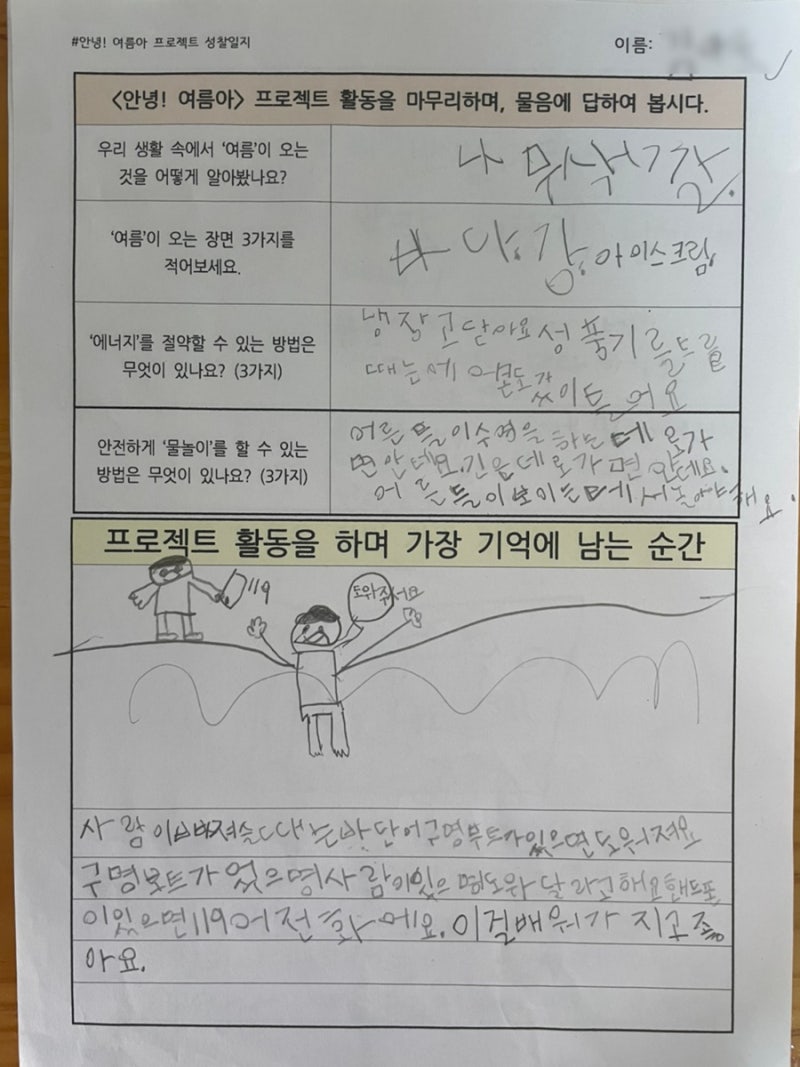 #안녕! 여름아 프로젝트 성찰일지
이름:
<안녕! 여름아> 프로젝트 활동을 마무리하며, 물음에 답하여 봅시다.
우리 생활 속에서 '여름'이 오는
것을 어떻게 알아봤나요?
나
'여름'이 오는 장면 3가지를
적어보세요.
아이스크림
'에너지'를 절약할 수 있는 방법은
무엇이 있나요? (3가지)
냉장고닫아요 성풍기를드를
때는세 이들어요
안전하게 '물놀이'를 할 수 있는
방법은 무엇이 있나요? (3가지)
어른들이수영을하는데로가
면안데요.긴은데로가면안데요.
어른들이보이는데서놀아야해요.
프로젝트 활동을 하며 가장 기억에 남는 순간
119
도와줘서요
사람이 구명부트가있으면도워져요
구명보트가없으명사람이있으명도와달라고해요핸드포
이있으면119어전화에요.이걸배워가지고좋
아요.